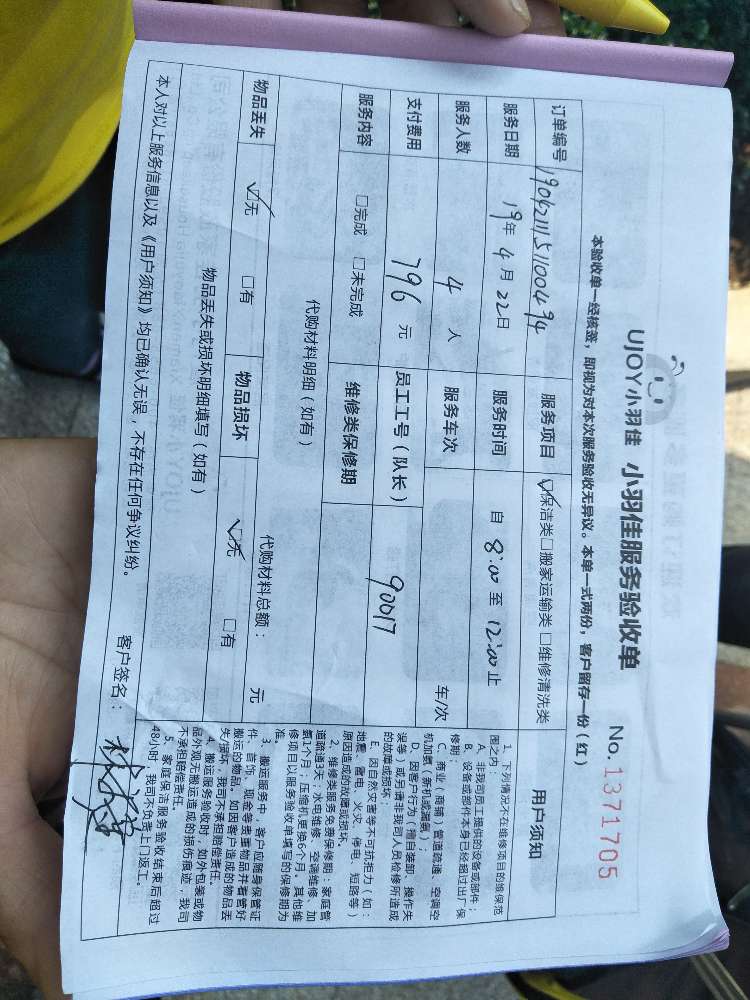 UJOY小羽佳 小羽佳服务验收单 No. 1371705
本验收单一经核签，即视为对本次服务验收无异议。本单一式两份，客户留存一份（红）
订单编号 服务项目 ☑保洁类□搬家运输类 □维修清洗类 用户须知
服务日期 19年 4月 22日 服务时间 自 8:00 至 12:00 止
服务人数 4 人 服务车次 车/次
支付费用 796 元 员工工号（队长） 90017
服务内容 □完成 □未完成 维修类保修期
代购材料明细（如有） 代购材料总额： 元
物品丢失 ☑无 □有 物品损坏 ☑无 □有
物品丢失或损坏明细填写（如有）
本人对以上服务信息以及《用户须知》均已确认无误，不存在任何争议纠纷。
客户签名：
1、下列情况不在维修项目的维保范
围之内：
A、非我司员工提供的设备或部件；
B、设备或部件本身已经超过出厂保
修期；
C、商业（商铺）管道疏通、空调空
机加氨（新机或漏氨）；
D、因客户行为（擅自装卸、操作失
误等）或另请非我司人员检修所造成
的故障或损坏
E、因自然灾害等不可抗拒为（如：
地震、雷电、火灾、停电、短路等）
原因造成的故障或损坏.
2、维修类服务免费保修期：家庭管
道疏通3天；水电维修、空调维修、加
氨1个月；压缩机更换6个月，其他维
修项目以服务验收单填写的保修期为
准。
3、搬运服务中，客户应随身保管证
件、首饰、现金等贵重物品并看管好
搬运的物品。如因客户造成的物品丢
失/损坏，我司不承担赔偿责任。
4、搬运服务验收时，如外包装或物
品外观无搬运造成的损伤痕迹，我司
不承担赔偿责任。
5、家庭保洁服务验收结束后超过
48小时，我司不负责上门返工。